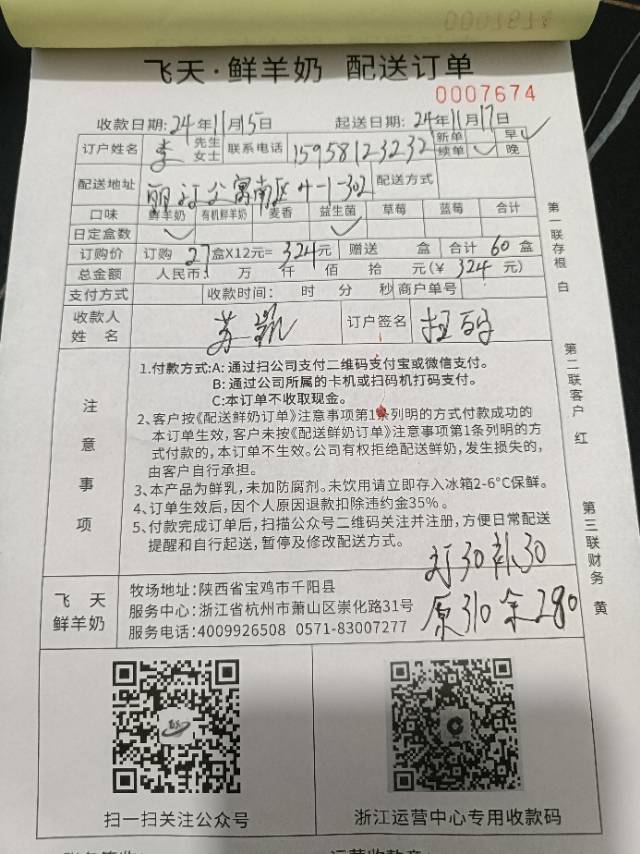 飞天·鲜羊奶 配送订单
0007674
收款日期:24年11月15日 起送日期:24年11月17日
订户姓名 李 先生 女士 联系电话 15958123232 新单 续单 ✓ 早 ✓ 晚
配送地址 丽江公寓南区4-1-302 配送方式
口味 鲜羊奶 有机鲜羊奶 麦香 益生菌 草莓 蓝莓 合计
日定盒数 ✓ ✓
订购价 订购 27 盒X12元= 324元 赠送 盒 合计 60 盒
总金额 人民币: 万 仟 佰 拾 元(¥ 324 元)
支付方式 收款时间: 时 分 秒 商户单号
收款人姓名 苏 订户签名 扫码
注意事项
1.付款方式:A:通过扫公司支付二维码支付宝或微信支付。
B:通过公司所属的卡机或扫码机打码支付。
C:本订单不收取现金。
2、客户按《配送鲜奶订单》注意事项第1条列明的方式付款成功的
本订单生效,客户未按《配送鲜奶订单》注意事项第1条列明的方
式付款的,本订单不生效。公司有权拒绝配送鲜奶,发生损失的,
由客户自行承担。
3、本产品为鲜乳,未加防腐剂。未饮用请立即存入冰箱2-6°C保鲜。
4、订单生效后,因个人原因退款扣除违约金35%。
5、付款完成订单后,扫描公众号二维码关注并注册,方便日常配送
提醒和自行起送,暂停及修改配送方式。
订30补30
原310余280
飞天
鲜羊奶
牧场地址:陕西省宝鸡市千阳县
服务中心:浙江省杭州市萧山区崇化路31号
服务电话:4009926508 0571-83007277
扫一扫关注公众号
浙江运营中心专用收款码
第一联存根 白
第二联客户 红
第三联财务 黄